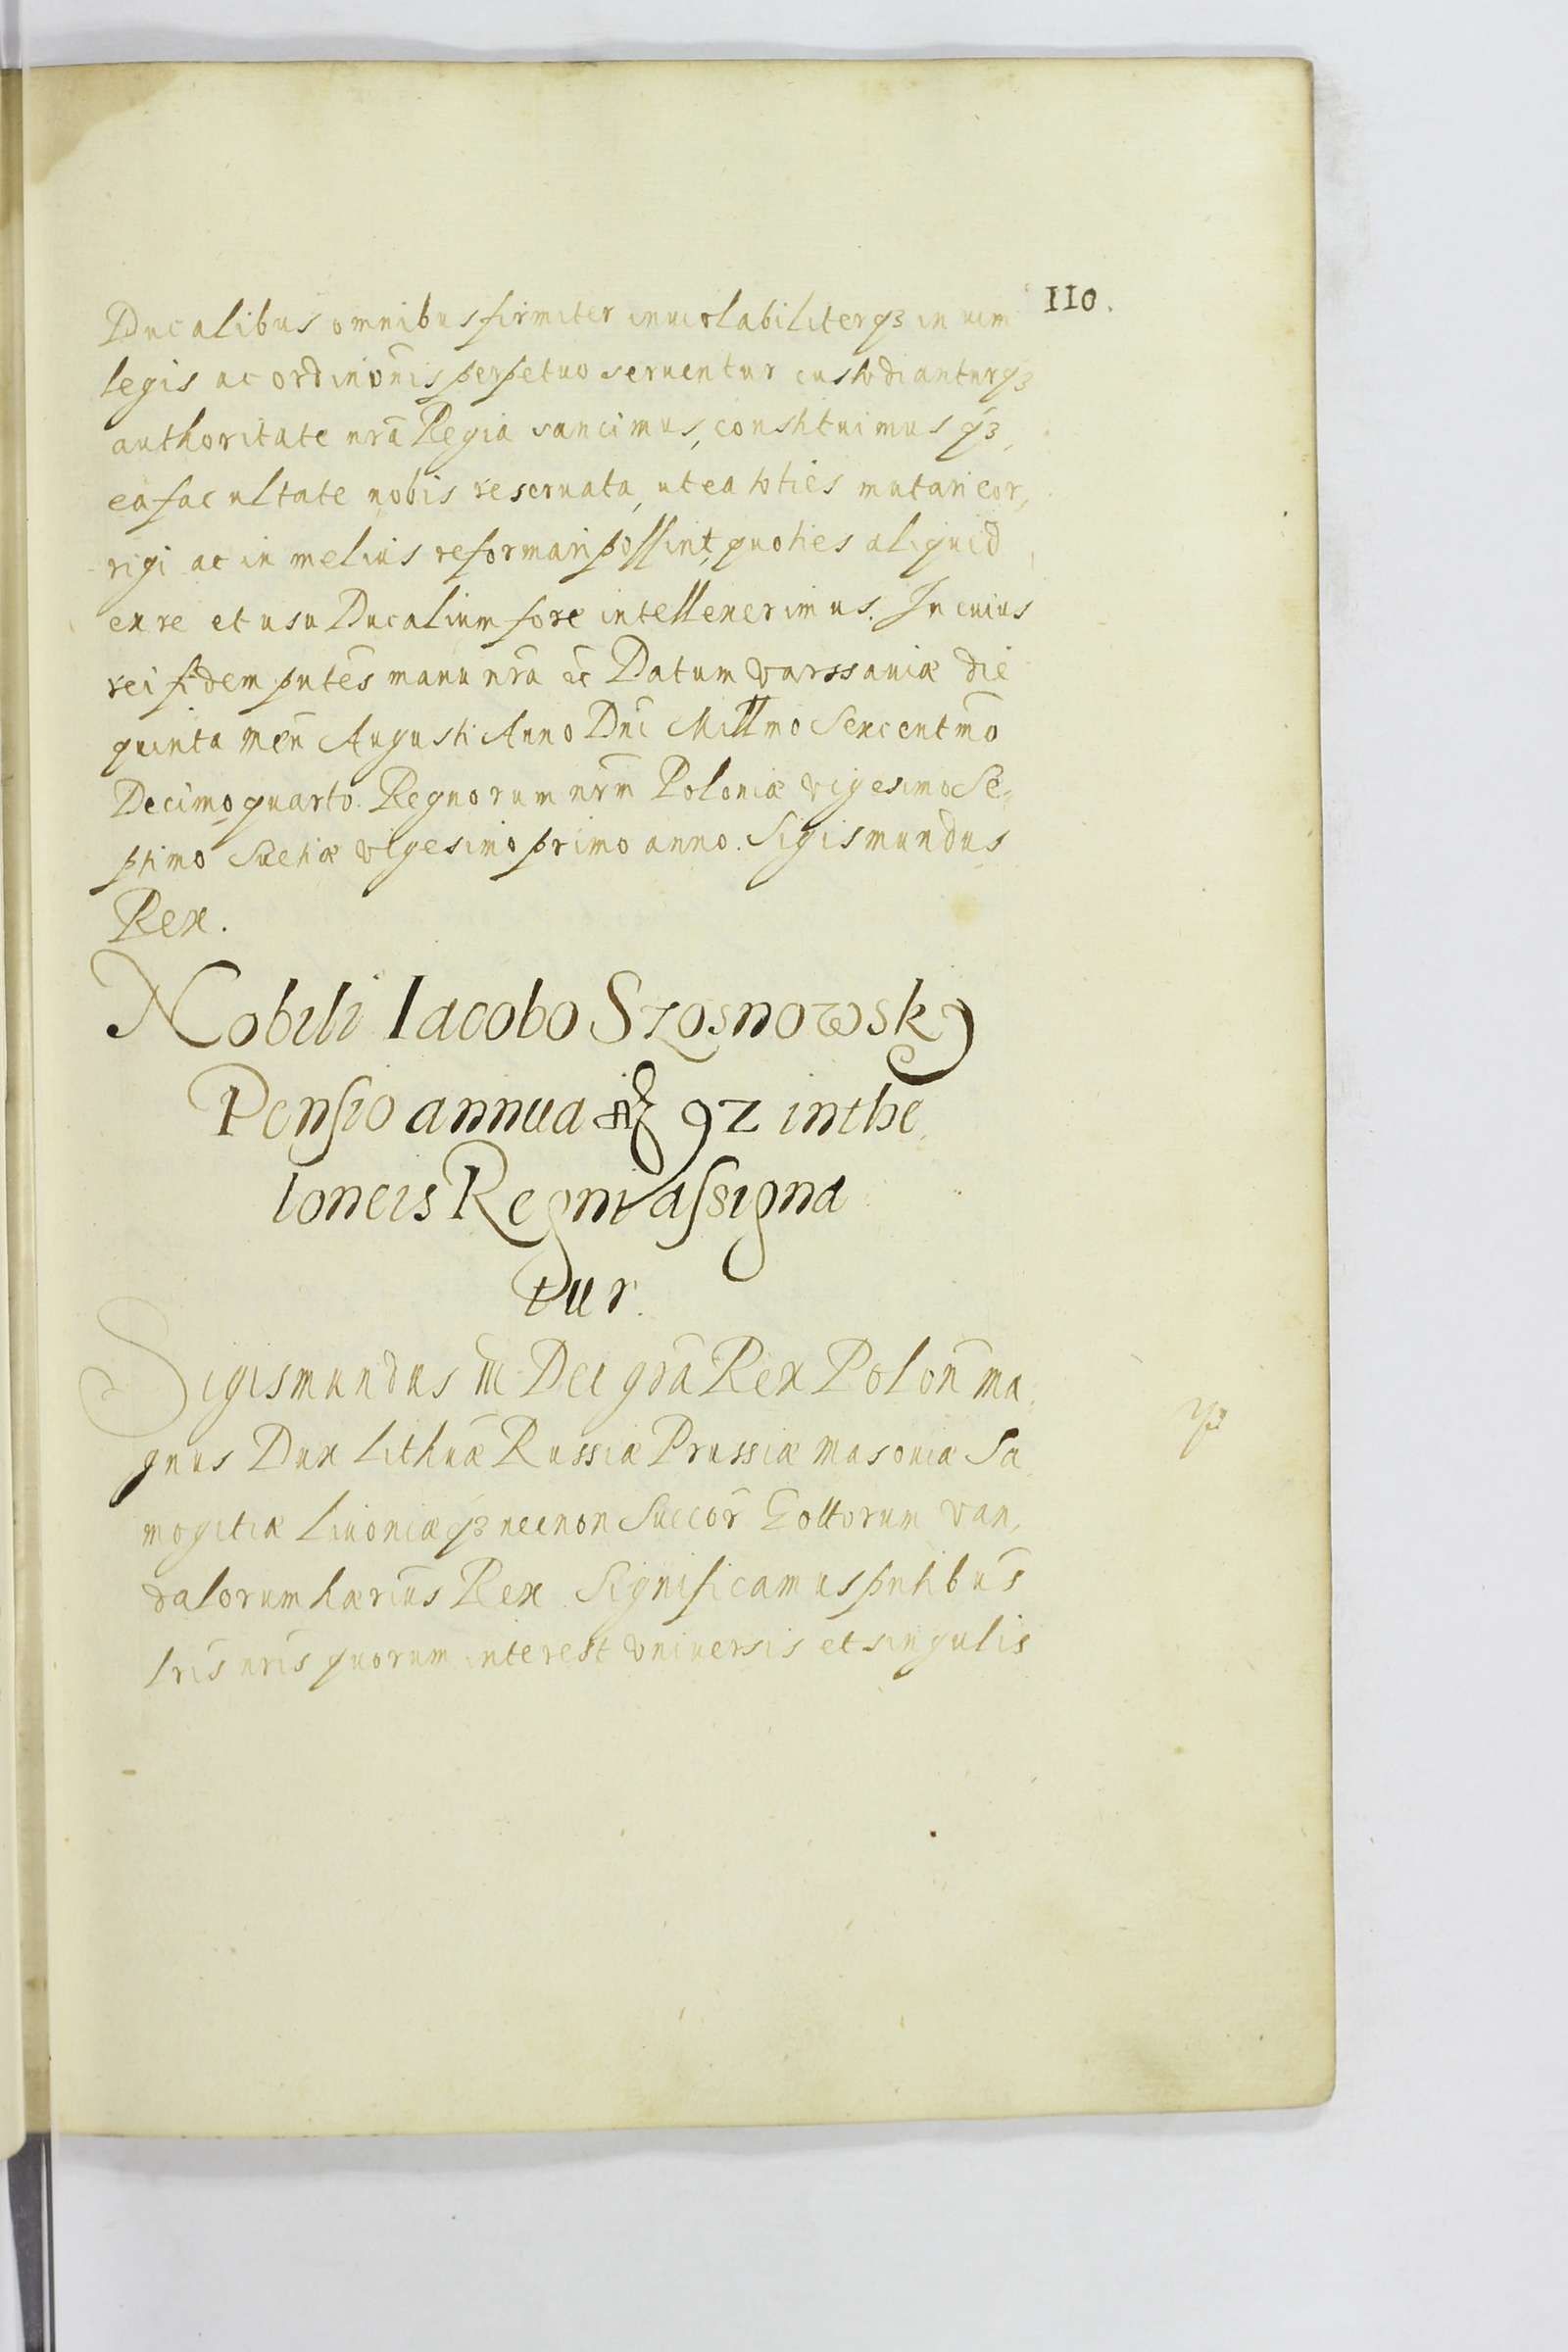 110.
Ducalibus omnibus firmiter inuiolabiliterqꝫ in uim
legis ac ordinōnis perpetuo seruentur custodianturqꝫ
authoritate nrā Regia sancimus, constituimus qꝫ,
ea facultate nobis reseruata, ut ea toties mutari cor,
rigi ac in melius reformari possint, quoties aliquid
ex re et usu Ducalium fore intellexerimus. In cuius
rei fidem pntēs manu nrā ēc Datum Varssauiæ die
quinta Men̄ Augusti Anno Dnī Millmo Sexcentmō
Decimo quarto. Regnorum nrm̄ Poloniæ vigesimo Se,
ptimo Suetiæ vigesimo primo anno. Sigismundus
Rex.
Nobili Iacobo Szosnowsky
Pensio annua 92 in the,
loneis Regni assigna
tur.
Sigismundus III Dei grā Rex Polon̄ ma,
gnus Dux Lithuā Russiæ Prussiæ Masouiæ Sa
mogitiæ Liuoniæqꝫ necnon Succor̄ Gottorum Van,
dalorum hærius̄ Rex Significamus pntibus̄
lris̄ nris̄ quorum interest vniuersis et singulis